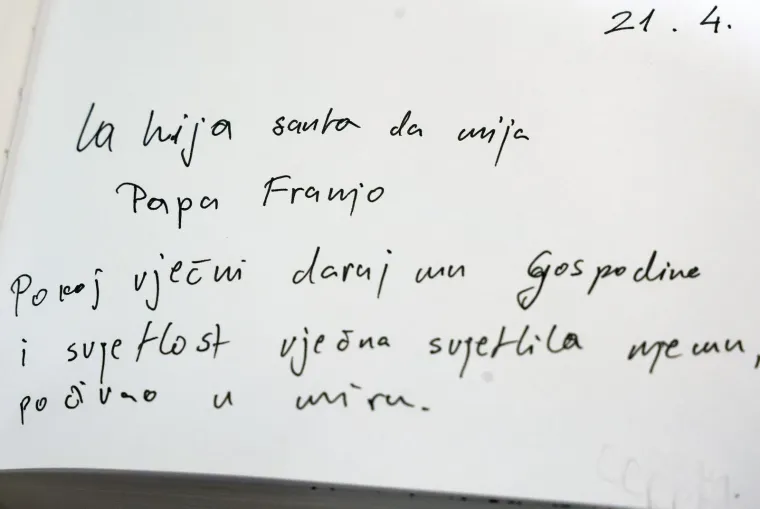 21. 4.
la hija santa da mija
Papa Franjo
Pokoj vječni daruj mu Gospodine
i svjetlost vječna svjetlila njemu,
počivao u miru.